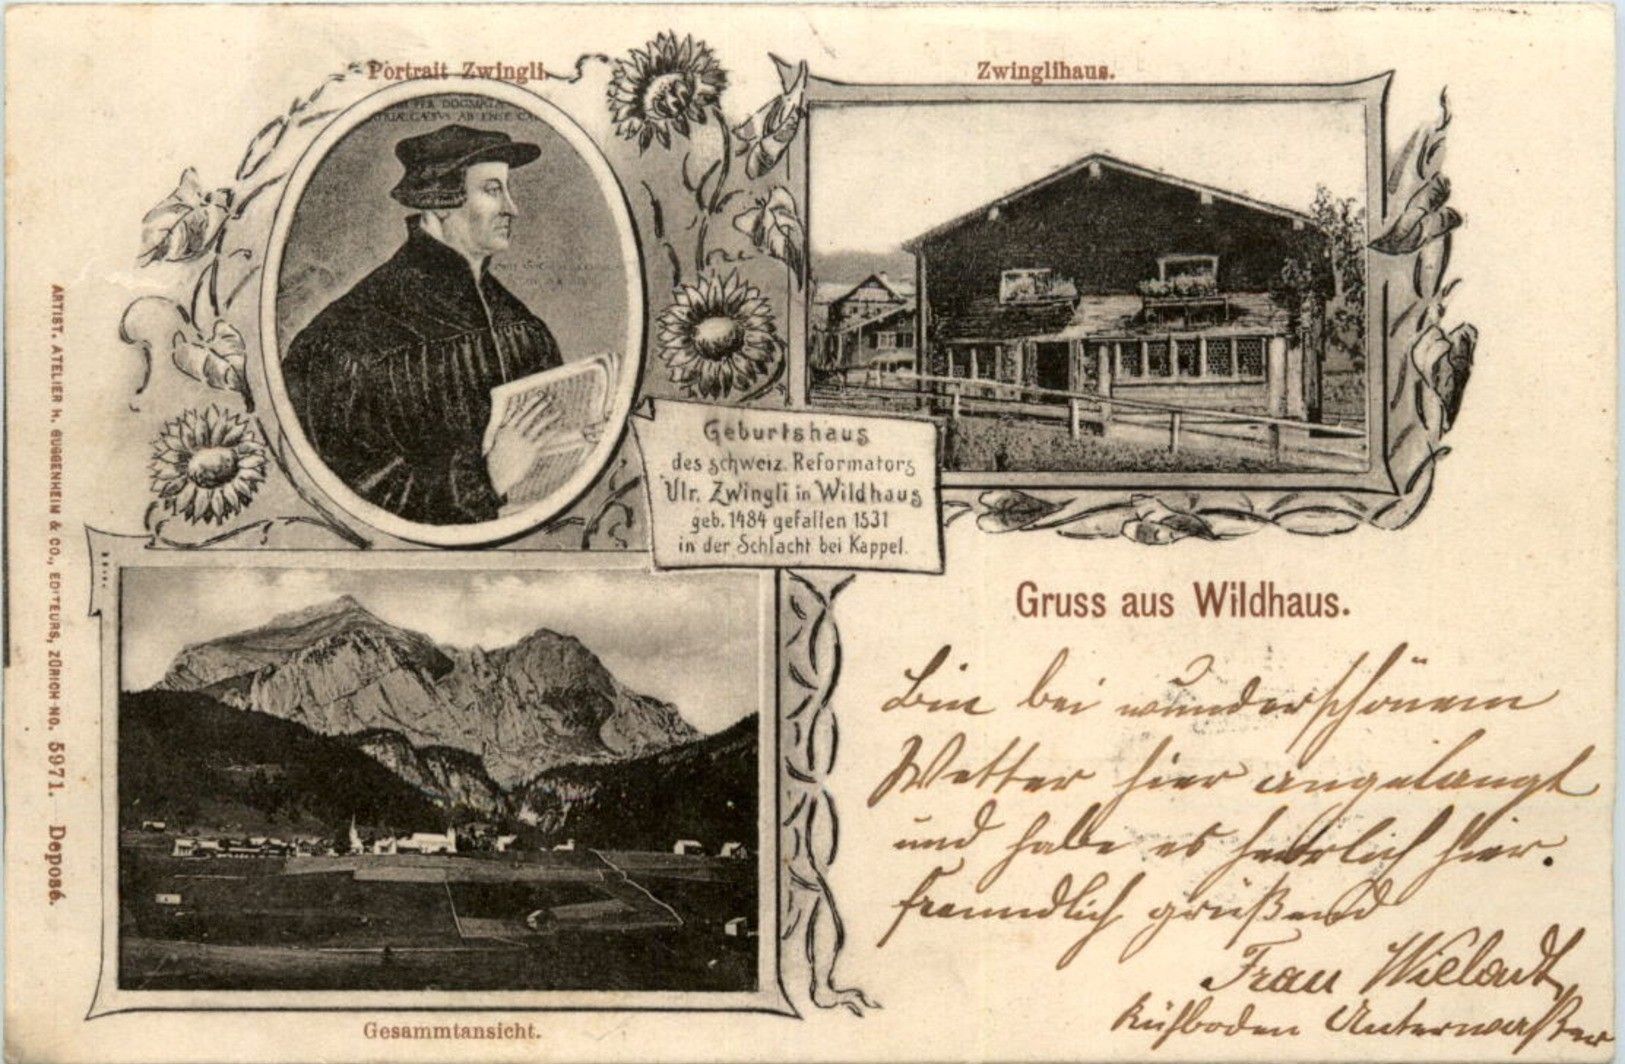 Portrait Zwingli.
Zwinglihaus.
Geburtshaus
des schweiz. Reformators
Ulr. Zwingli in Wildhaus
geb. 1484 gefallen 1531
in der Schlacht bei Kappel.
Gruss aus Wildhaus.
Bin bei wunderschönem
Wetter hier angelangt
und habe es herrlich hier.
Freundlich grüßend
Frau Wieladt
Kühboden Unterwaßer
Gesammtansicht.
ARTIST. ATELIER H. GUGGENHEIM & CO., EDITEURS, ZÜRICH NO. 5971. Deposé.